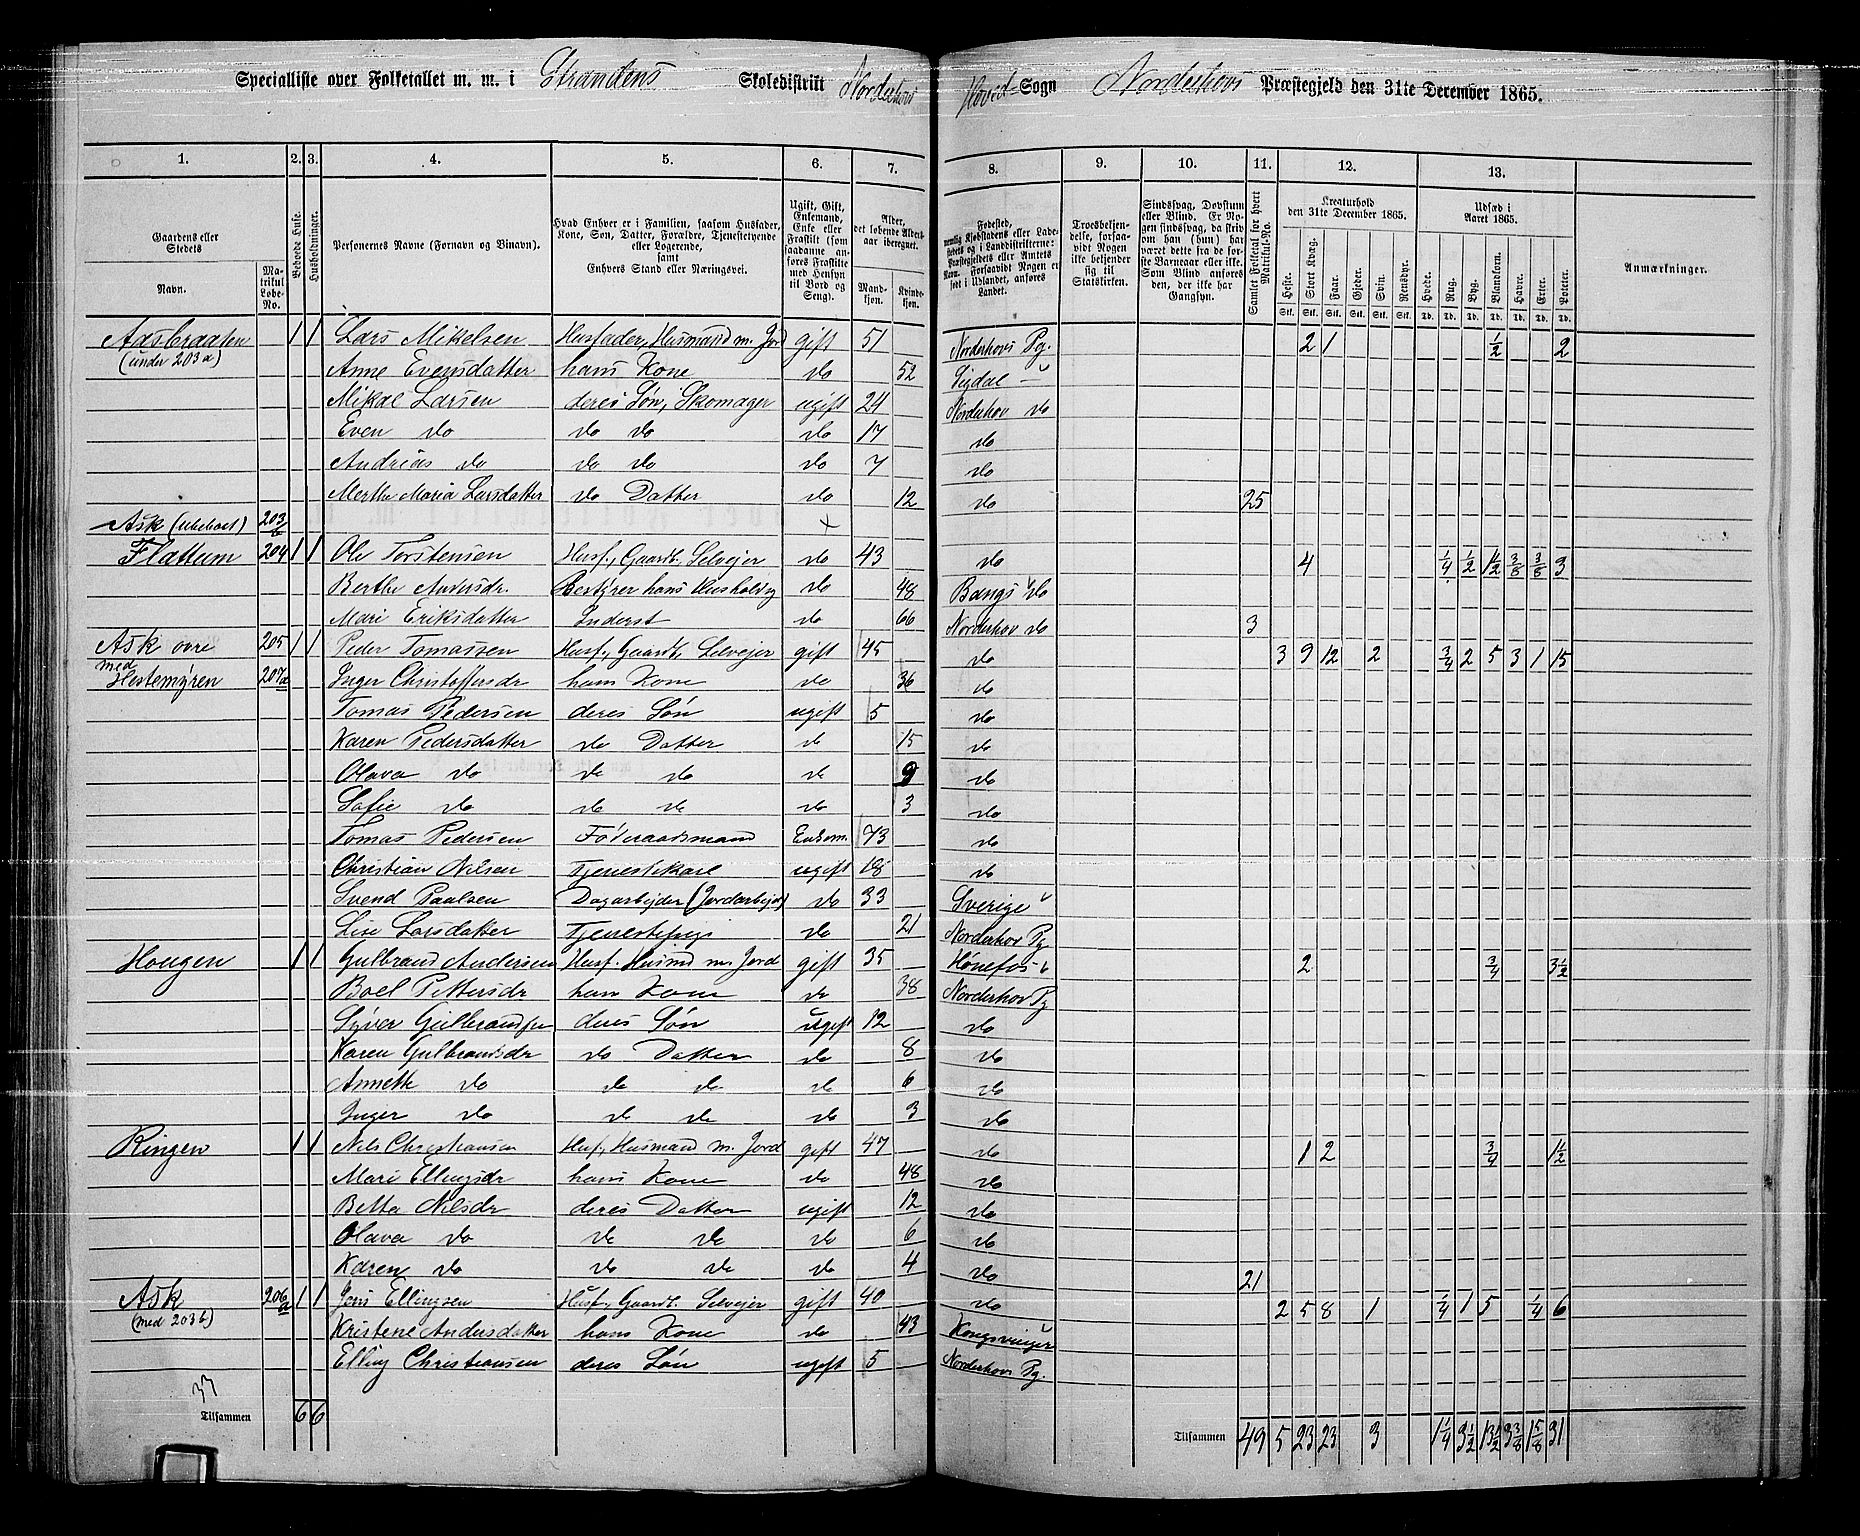 Specialliste over Folketallet m. m. i Strandens Skoledistrikt Norderhov Hoved-Sogn Norderhovs Præstegjeld den 31te December 1865.
1. 2. 3. 4. 5. 6. 7. 8. 9. 10. 11. 12. 13.
Gaardens eller Stedets
Navn. Matrikul Løbe-No.
Beboede Huse.
Husholdninger.
Personernes Navne (Fornavn og Binavn).
Hvad Enhver er i Familien, saasom Husfader, Kone, Søn, Datter, Forældre, Tjenestetyende eller Logerende, samt Enhvers Stand eller Næringsvei.
Ugift, Gift, Enkemand, Enke eller Fraskilt (som saadanne anføres Fraskilte med Hensyn til Bord og Seng).
Alder, det løbende Alders aar iberegnet.
Mandkjøn. Kvindekjøn.
Fødested,
Troesbekjendelse, forsaavidt Nogen ikke bekjender sig til Statskirken.
Sindssvag, Døvstum eller Blind. Er Nogen sindssvag, da skriv om han (hun) har været det fra de første Barneaar eller ikke. Som Blind anføres den, der ikke har Gangsyn.
Samlet Folketal for hvert Matrikul-No.
Kreaturhold den 31te December 1865.
Heste. Stort Kvæg. Faar. Gjeder. Svin. Rensdyr.
Udsæd i Aaret 1865.
Hvede. Rug. Byg. Blandkorn. Havre. Erter. Poteter.
Anmærkninger.
Stk. Stk. Stk. Stk. Stk. Stk. Td. Td. Td. Td. Td. Td. Td.
Aasbraaten 1 1 Lars Mikelsen Husfader, Husmand m. Jord gift 51 Norderhovs Pg. 2 1 1/2 2
(under 203a) Anne Evensdatter hans Kone do 52 Sigdal
Mikael Larsen deres Søn, Skomager ugift 24 Norderhov do
Even do do do do 17 do
Andreas do do do do 7 do
Merthe Maria Larsdatter do Datter do 12 do 25
Ask (ubeboet) 203b
Flattum 204 1 1 Ole Torstensen Husf., Gaardb. Selvejer do 43 do 4 1/4 1/2 1 1/2 3/8 3/8 3
Berthe Andersdr. Bestyrer hans Husholdng do 48 Bangs do
Mari Eriksdatter Inderst do 66 Norderhov do 3
Ask øvre 205 1 1 Peder Tomassen Husf., Gaardb. Selvejer gift 45 do 3 9 12 2 3/4 2 5 3 1 15
med Hestemyren 207a Inger Christoffersdr hans Kone do 36 do
Tomas Pedersen deres Søn ugift 5 do
Karen Pedersdatter do Datter do 15 do
Olava do do do do 9 do
Sofie do do do do 3 do
Tomas Pedersen Føderaadsmand Enkem. 73 do
Christian Nilsen Tjenestekarl ugift 18 do
Svend Paulsen Dagarbejder (Jordarbejd) do 33 Sverige
Lise Larsdatter Tjenestepige do 21 Norderhov Pg
Hougen 1 1 Gulbrand Andersen Husf. Husmd m. Jord gift 35 Hønefos 2 3/4 3 1/2
Boel Pettersdr hans Kone do 38 Norderhov Pg
Syver Gulbrandsen deres Søn ugift 12 do
Karen Gulbrandsdr do Datter do 8 do
Annette do do do do 6 do
Inger do do do do 3 do
Ringen 1 1 Nils Christiansen Husf., Husmand m. Jord gift 47 do 1 2 3/4 1 1/2
Mari Ellingsdr hans Kone do 48 do
Betta Nilsdr deres Datter ugift 12 do
Olava do do do do 6 do
Karen do do do do 4 do 21
Ask 206a 1 1 Jens Ellingsen Husf., Gaardb. Selvejer gift 40 do 2 5 8 1 1/4 1 5 1/4 6
(med 203b) Kristene Andersdatter hans Kone do 43 Kongsvinger
Elling Christiansen deres Søn ugift 5 Norderhovs Pg.
33
Tilsammen 6 6 Tilsammen 49 5 23 23 3 1 1/4 3 1/2 13 1/2 3 3/8 1 5/8 31